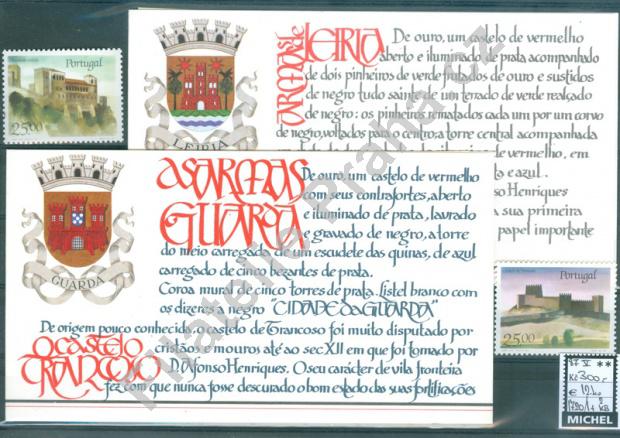 Portugal
25.00
LEIRIA
As Armas de
LEIRIA
De ouro, um castelo de vermelho
aberto e iluminado de prata acompanhado
de dois pinheiros de verde frutados de ouro e sustidos
de negro tudo sainte de um terrado de verde realçado
de negro: os pinheiros rematados cada um por um corvo
de negro, voltados para o centro; a torre central acompanhada
verde, em
ta e azul.
Henriques
a sua primeira
papel importante
GUARDA
as ARMAS
GUARDA
De ouro, um castelo de vermelho
com seus contrafortes, aberto
e iluminado de prata, lavrado
e gravado de negro, a torre
do meio carregada de um escudete das quinas, de azul
carregado de cinco bezantes de prata.
Coroa mural de cinco torres de prata. Listel branco com
os dizeres a negro "CIDADE da GUARDA"
De origem pouco conhecida, o castelo de Trancoso foi muito disputado por
o castelo
TRANCOSO
cristãos e mouros até ao sec XII em que foi tomado por
D. Afonso Henriques. O seu carácter de vila fronteira
fez com que nunca fosse descurado o bom estado das suas fortificações
Portugal
25.00
87 V **
Kč 300,-
MICHEL
Filatelie Praha cz